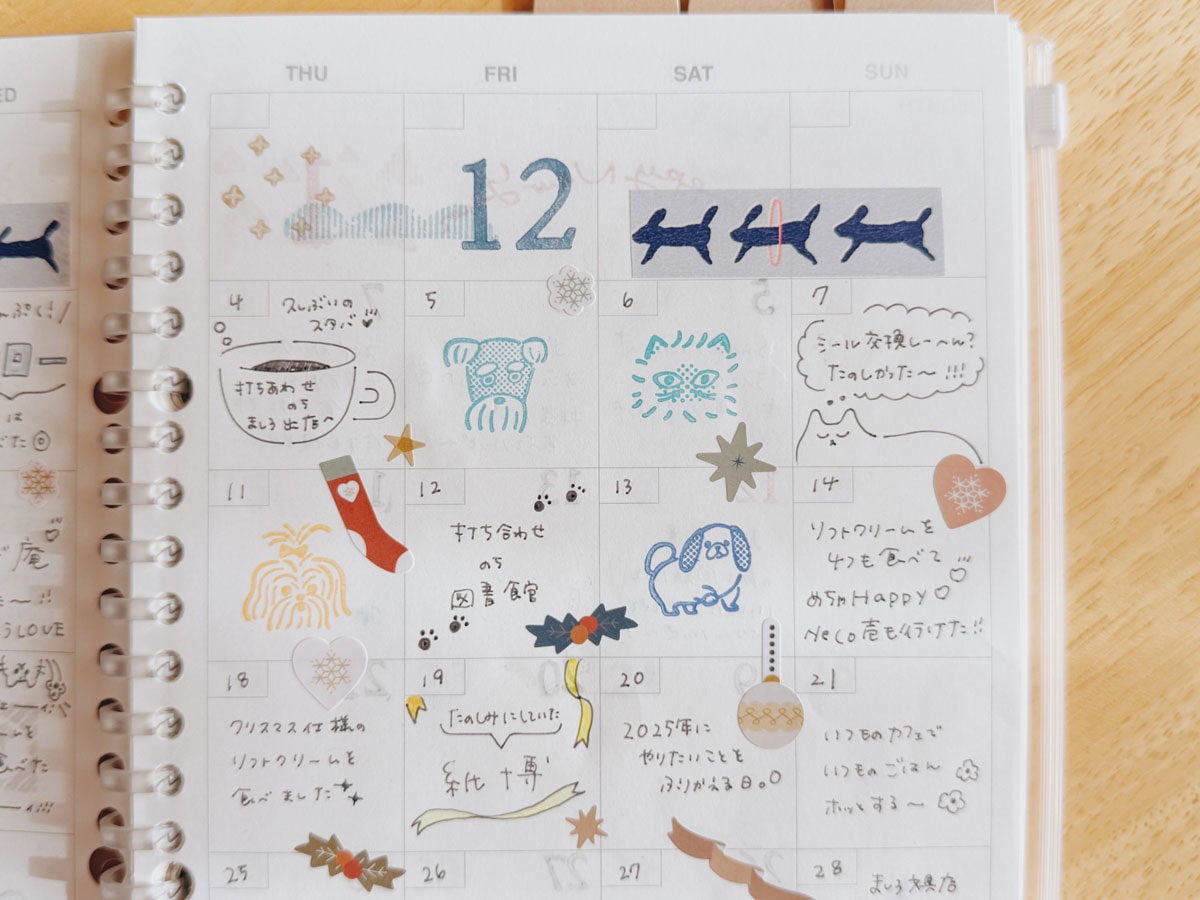 THU FRI SAT SUN
12
4
久しぶりの
スタバ
打ちあわせ
のち
ましろ
5
6
7
シール交換しーへん?
たのしかった〜!!!
11
12
打ち合わせ
のち
図書館
13
14
ソフトクリームを
4つも食べて
めちゃHappy♡
Neco
18
クリスマス仕様の
ソフトクリームを
食べました
19
たのしみにしていた
紙博
20
2025年に
やりたいことを
ふりかえる日。
21
いつものカフェで
いつものごはん
ホッとする〜
25
26
27
28
ましろ文具店
庵
LOVE